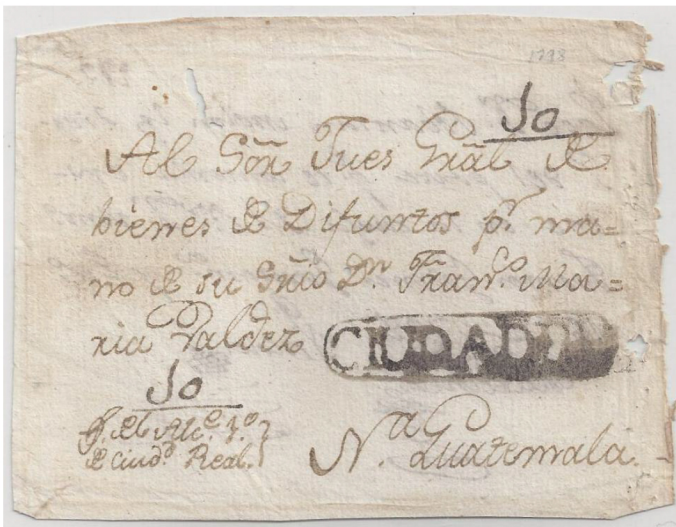 1798
10
Al Sōr Jues Grāl de
bienes de Difuntos pr. ma=
no de su Srīo Dn. Franco. Ma=
ria Valdez CIUDAD
10
El Alce. 1o.
de Ciudd. Real.
Na. Guatemala.